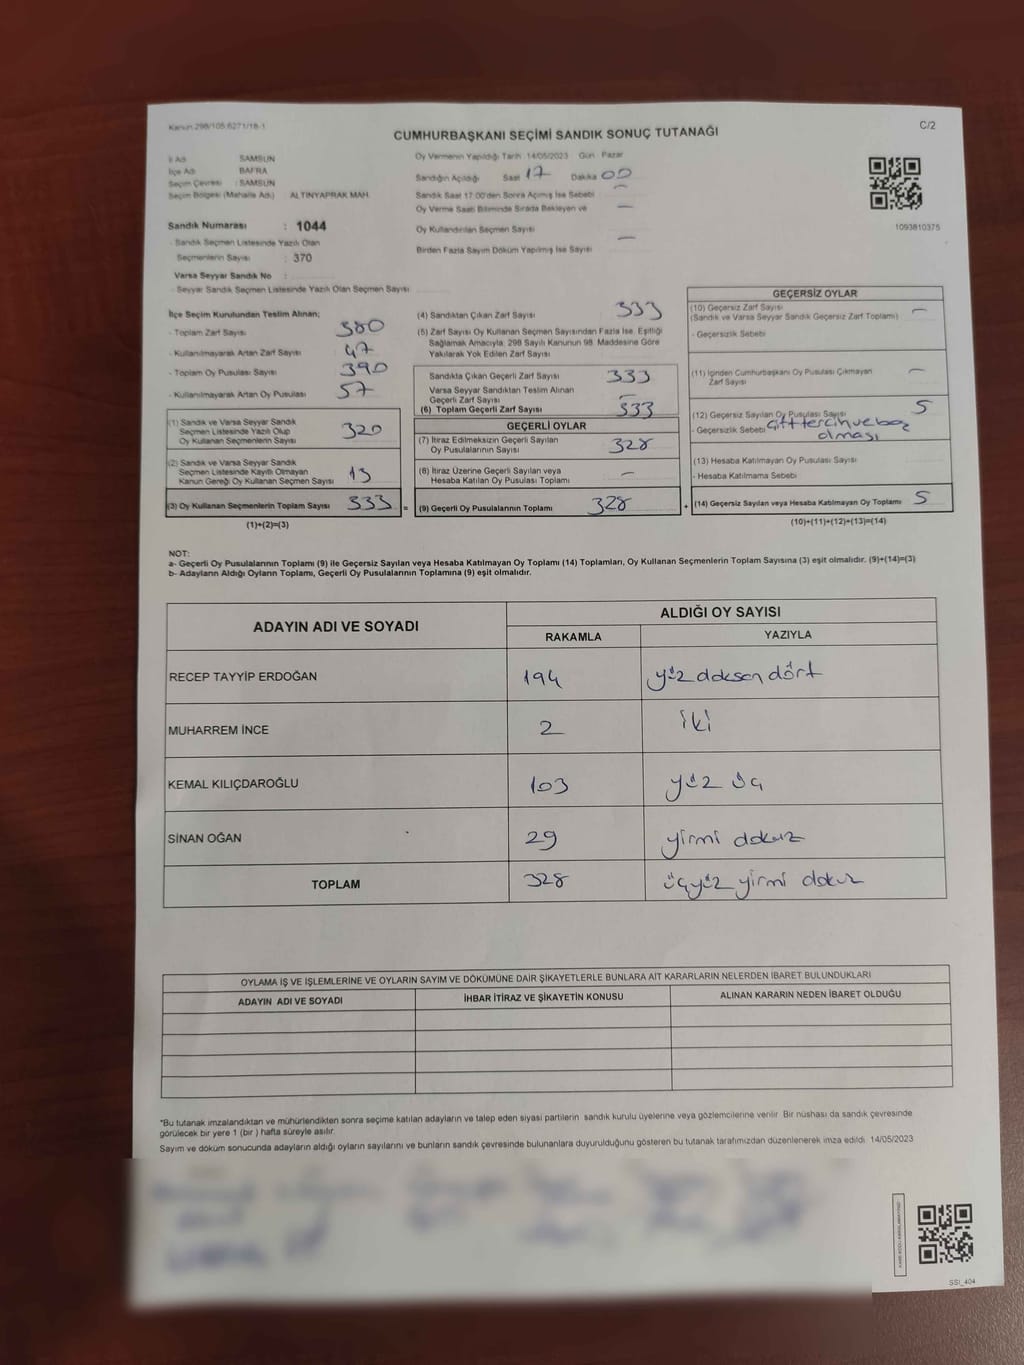 Kanun 298/105.6271/18-1
C/2
CUMHURBAŞKANI SEÇİMİ SANDIK SONUÇ TUTANAĞI
İl Adı SAMSUN
İlçe Adı BAFRA
Seçim Çevresi : SAMSUN
Seçim Bölgesi (Mahalle Adı) ALTINYAPRAK MAH.
Sandık Numarası : 1044
- Sandık Seçmen Listesinde Yazılı Olan
Seçmenlerin Sayısı : 370
Varsa Seyyar Sandık No :
- Seyyar Sandık Seçmen Listesinde Yazılı Olan Seçmen Sayısı
Oy Vermenin Yapıldığı Tarih 14/05/2023 Gün Pazar
Sandığın Açıldığı Saat 17 Dakika 00
Sandık Saat 17.00'den Sonra Açılmış İse Sebebi —
Oy Verme Saati Bitiminde Sırada Bekleyen ve —
Oy Kullandırılan Seçmen Sayısı
Birden Fazla Sayım Döküm Yapılmış İse Sayısı —
1093810375
İlçe Seçim Kurulundan Teslim Alınan;
- Toplam Zarf Sayısı 380
- Kullanılmayarak Artan Zarf Sayısı 47
- Toplam Oy Pusulası Sayısı 390
- Kullanılmayarak Artan Oy Pusulası 57
(1) Sandık ve Varsa Seyyar Sandık
Seçmen Listesinde Yazılı Olup
Oy Kullanan Seçmenlerin Sayısı 320
(2) Sandık ve Varsa Seyyar Sandık
Seçmen Listesinde Kayıtlı Olmayan
Kanun Gereği Oy Kullanan Seçmen Sayısı 13
(3) Oy Kullanan Seçmenlerin Toplam Sayısı 333 =
(1)+(2)=(3)
(4) Sandıktan Çıkan Zarf Sayısı 333
(5) Zarf Sayısı Oy Kullanan Seçmen Sayısından Fazla İse, Eşitliği
Sağlamak Amacıyla, 298 Sayılı Kanunun 98. Maddesine Göre
Yakılarak Yok Edilen Zarf Sayısı
Sandıkta Çıkan Geçerli Zarf Sayısı 333
Varsa Seyyar Sandıktan Teslim Alınan
Geçerli Zarf Sayısı —
(6) Toplam Geçerli Zarf Sayısı 333
GEÇERLİ OYLAR
(7) İtiraz Edilmeksizin Geçerli Sayılan
Oy Pusulalarının Sayısı 328
(8) İtiraz Üzerine Geçerli Sayılan veya
Hesaba Katılan Oy Pusulası Toplamı —
(9) Geçerli Oy Pusulalarının Toplamı 328 +
GEÇERSİZ OYLAR
(10) Geçersiz Zarf Sayısı —
(Sandık ve Varsa Seyyar Sandık Geçersiz Zarf Toplamı)
- Geçersizlik Sebebi
(11) İçinden Cumhurbaşkanı Oy Pusulası Çıkmayan —
Zarf Sayısı
(12) Geçersiz Sayılan Oy Pusulası Sayısı 5
- Geçersizlik Sebebi Çift tercih ve boş
olması
(13) Hesaba Katılmayan Oy Pusulası Sayısı
- Hesaba Katılmama Sebebi
(14) Geçersiz Sayılan veya Hesaba Katılmayan Oy Toplamı 5
(10)+(11)+(12)+(13)=(14)
NOT:
a- Geçerli Oy Pusulalarının Toplamı (9) ile Geçersiz Sayılan veya Hesaba Katılmayan Oy Toplamı (14) Toplamları, Oy Kullanan Seçmenlerin Toplam Sayısına (3) eşit olmalıdır. (9)+(14)=(3)
b- Adayların Aldığı Oyların Toplamı, Geçerli Oy Pusulalarının Toplamına (9) eşit olmalıdır.
ADAYIN ADI VE SOYADI
ALDIĞI OY SAYISI
RAKAMLA YAZIYLA
RECEP TAYYİP ERDOĞAN 194 yüz doksan dört
MUHARREM İNCE 2 iki
KEMAL KILIÇDAROĞLU 103 yüz üç
SİNAN OĞAN 29 yirmi dokuz
TOPLAM 328 üçyüz yirmi dokuz
OYLAMA İŞ VE İŞLEMLERİNE VE OYLARIN SAYIM VE DÖKÜMÜNE DAİR ŞİKAYETLERLE BUNLARA AİT KARARLARIN NELERDEN İBARET BULUNDUKLARI
ADAYIN ADI VE SOYADI İHBAR İTİRAZ VE ŞİKAYETİN KONUSU ALINAN KARARIN NEDEN İBARET OLDUĞU
*Bu tutanak imzalandıktan ve mühürlendikten sonra seçime katılan adayların ve talep eden siyasi partilerin sandık kurulu üyelerine veya gözlemcilerine verilir. Bir nüshası da sandık çevresinde
görülecek bir yere 1 (bir ) hafta süreyle asılır.
Sayım ve döküm sonucunda adayların aldığı oyların sayılarını ve bunların sandık çevresinde bulunanlara duyurulduğunu gösteren bu tutanak tarafımızdan düzenlenerek imza edildi. 14/05/2023
SSI_404